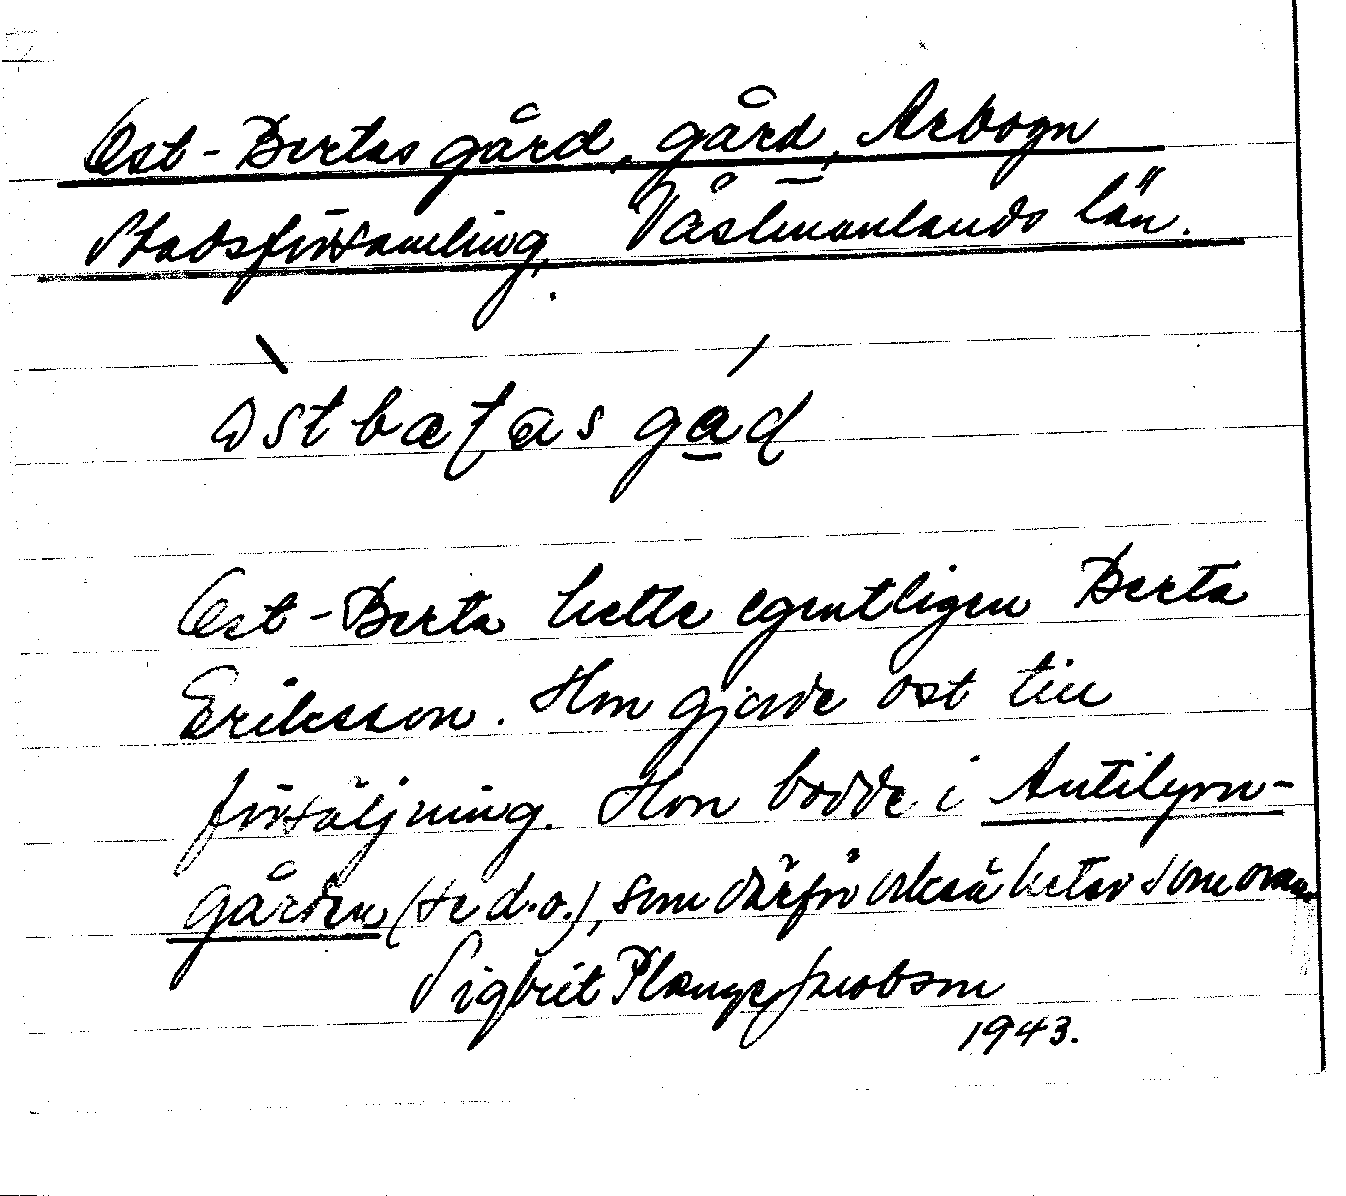 Ost-Bertas gård, gård, Arboga
Stadsförsamling, Västmanlands län.
ostbætas gad
Ost-Berta hette egentligen Berta
Eriksson. Hon gjorde ost till
försäljning. Hon bodde i Antilynn-
gården (se d.o.), som därför också hetat som ovan
Sigbrit Plænge Jacobson
1943.